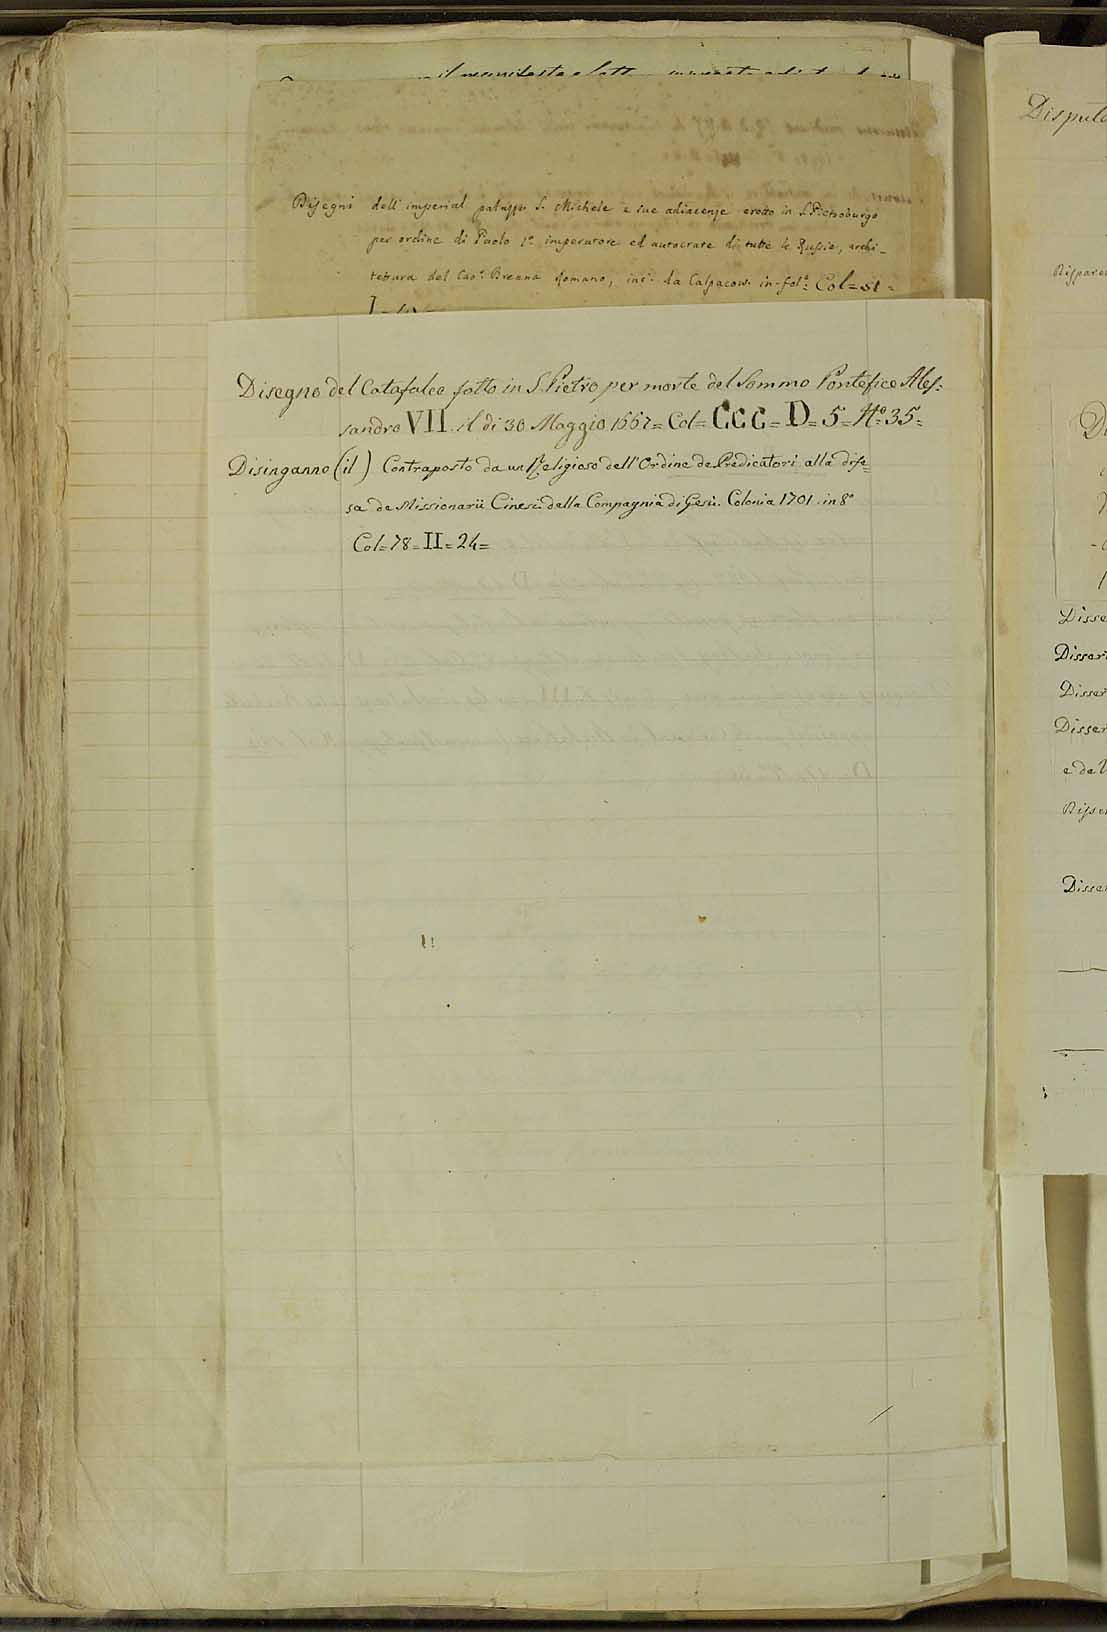 Disegni dell'imperial palazzo S. Michele e sue adiacenze eretto in S. Pietroburgo
per ordine di Paolo 1º imperatore ed autocrate di tutte le Russie, archi-
tettura del Cavº Brenna Romano, inc. da Calpacow. in-folº Col=51=
Disegno del Catafalco fatto in S. Pietro per morte del Sommo Pontefice Ales=
sandro VII. il di 30 Maggio 1667= Col= CCC= D= 5= Nº 35=
Disinganno (il) Contraposto da un Religioso dell'Ordine de Predicatori alla dife=
sa de Missionarii Cinesi della Compagnia di Gesù. Colonia 1701. in 8º
Col= 78= II= 24=
Disser
Disser
Disser
e de